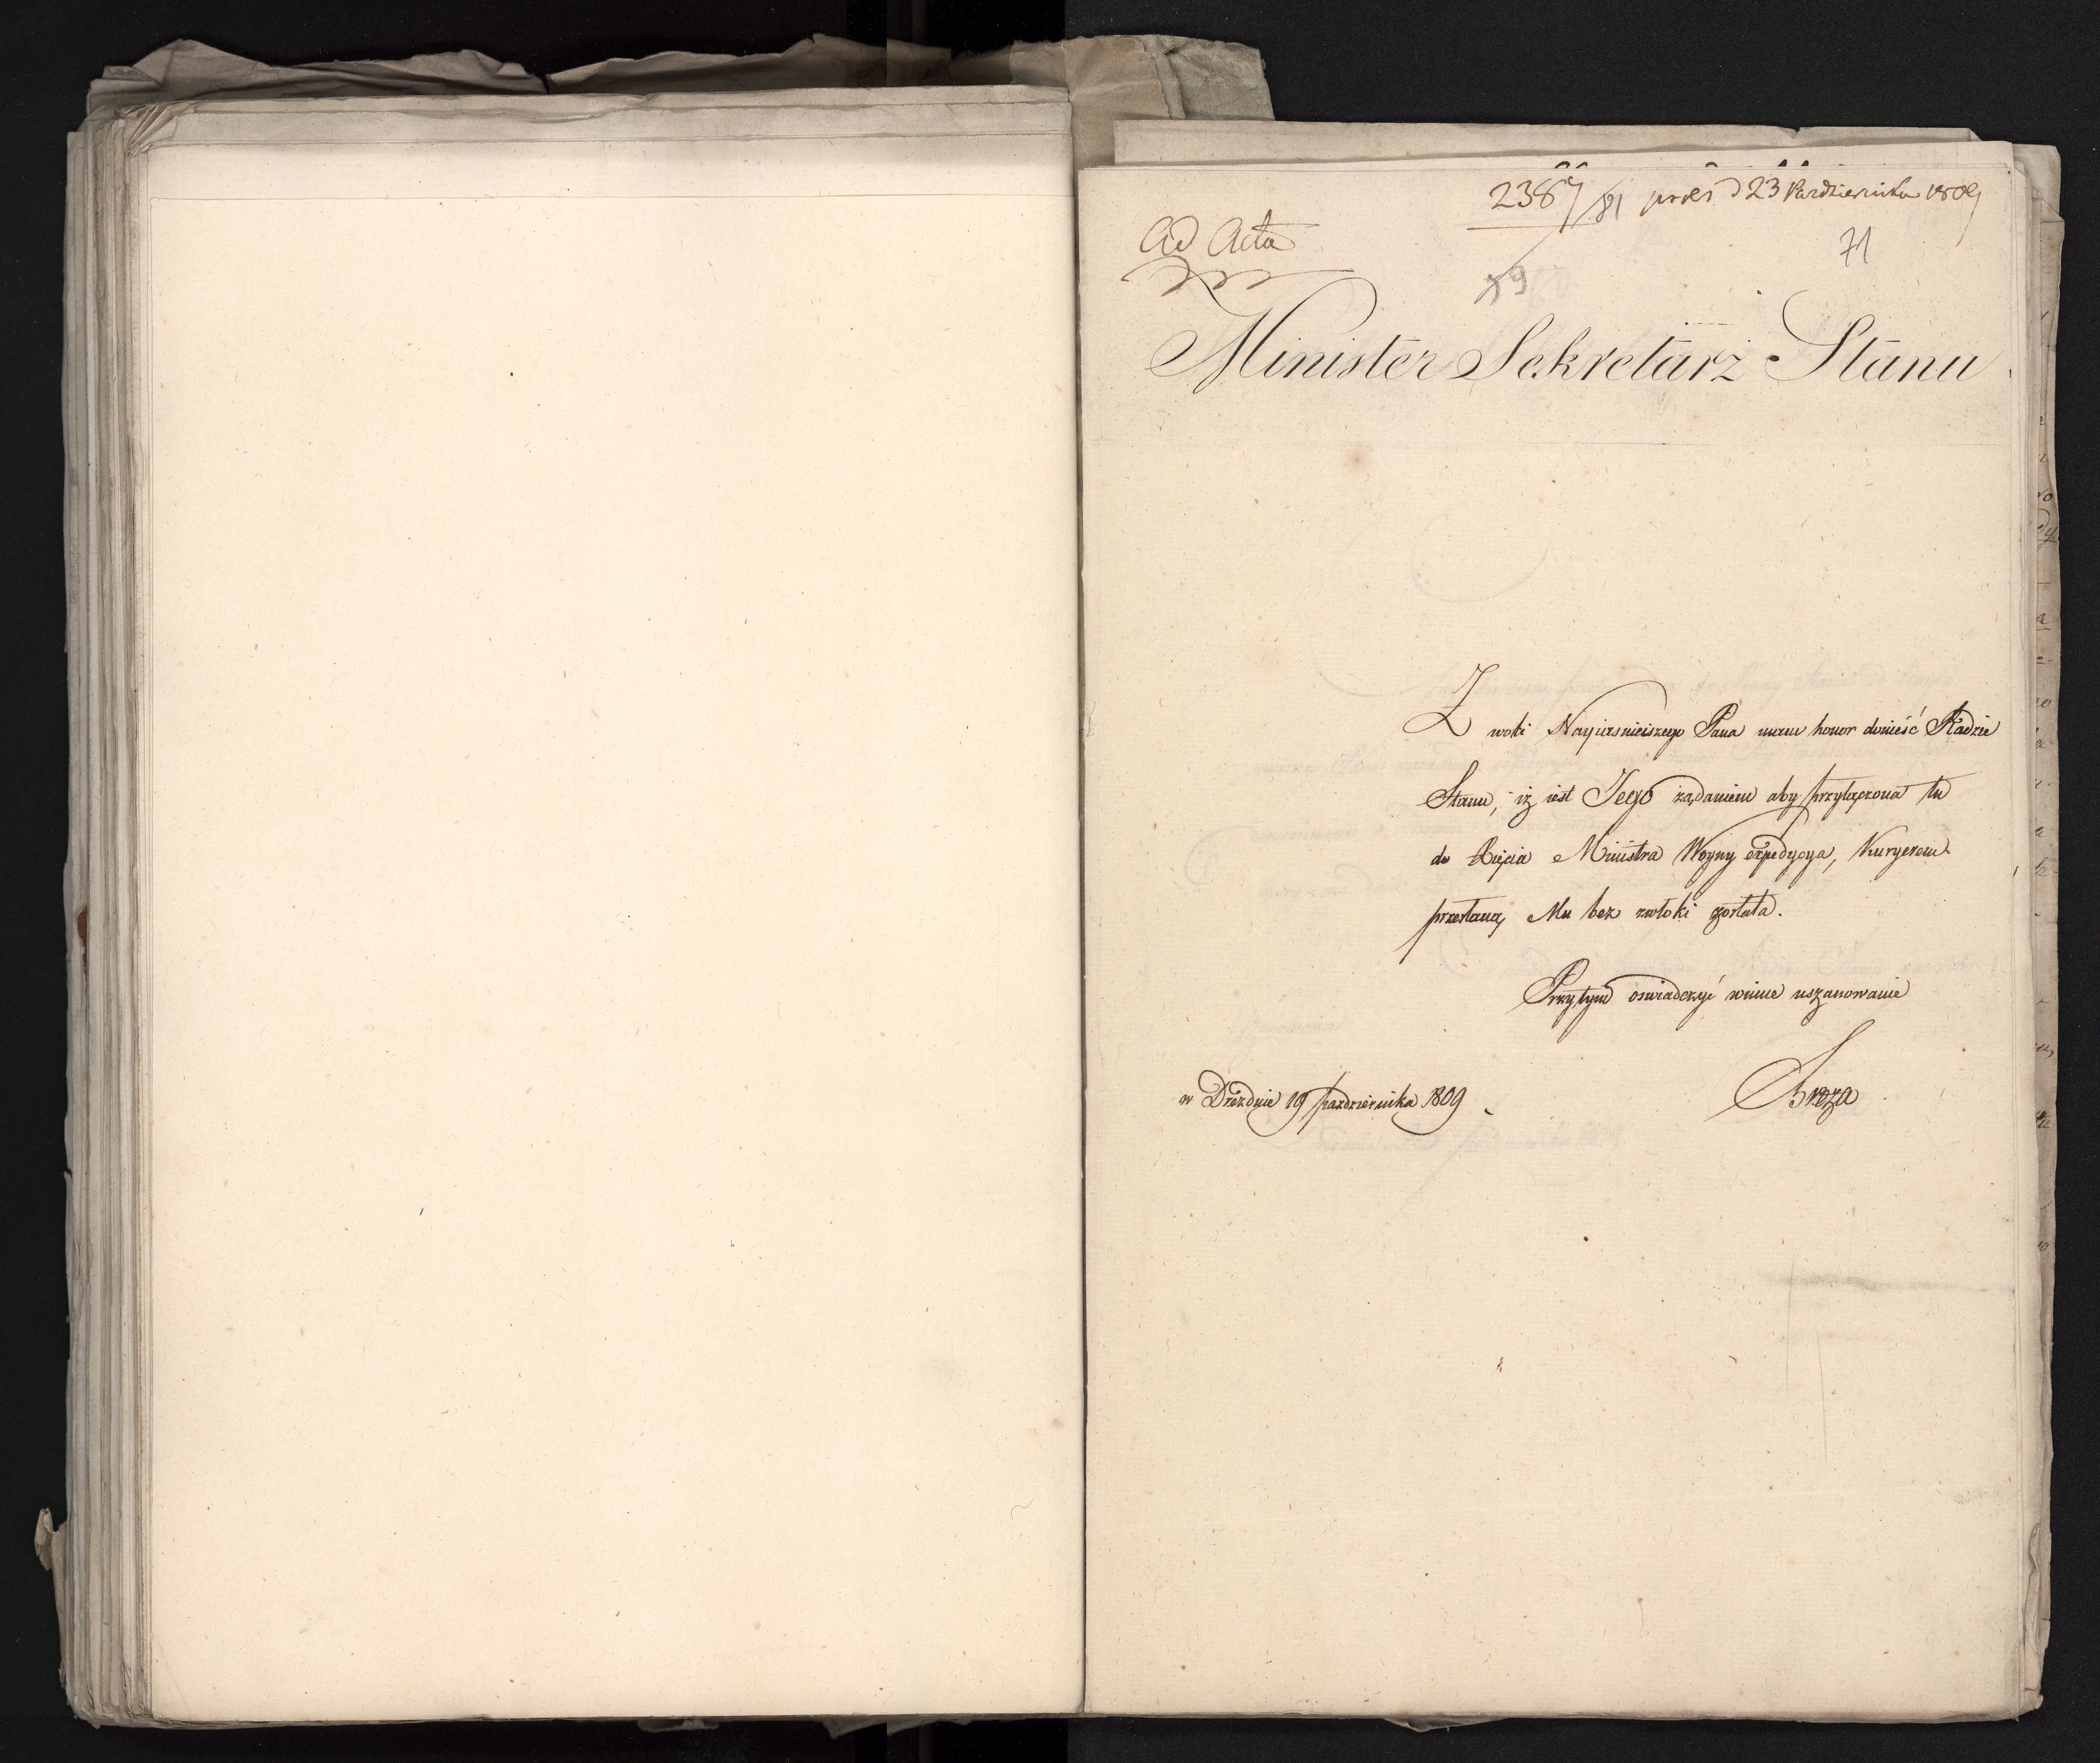 2387/81 praes d 23 Pazdziernika 1809
Ad Acta
71
79
Minister Sekretarz Stanu
Z woli Nayiasnieiszego Pana mam honor donieść Radzie
Stanu, iż iest Jego żądaniem aby przyłączona tu
do Xięcia Ministra Woyny expedycya, Kuryerem
przesłaną Mu bez zwłoki została.
Przytym oswiadczyć winne uszanowanie
w Dreźnie 19 pazdziernika 1809
Breza